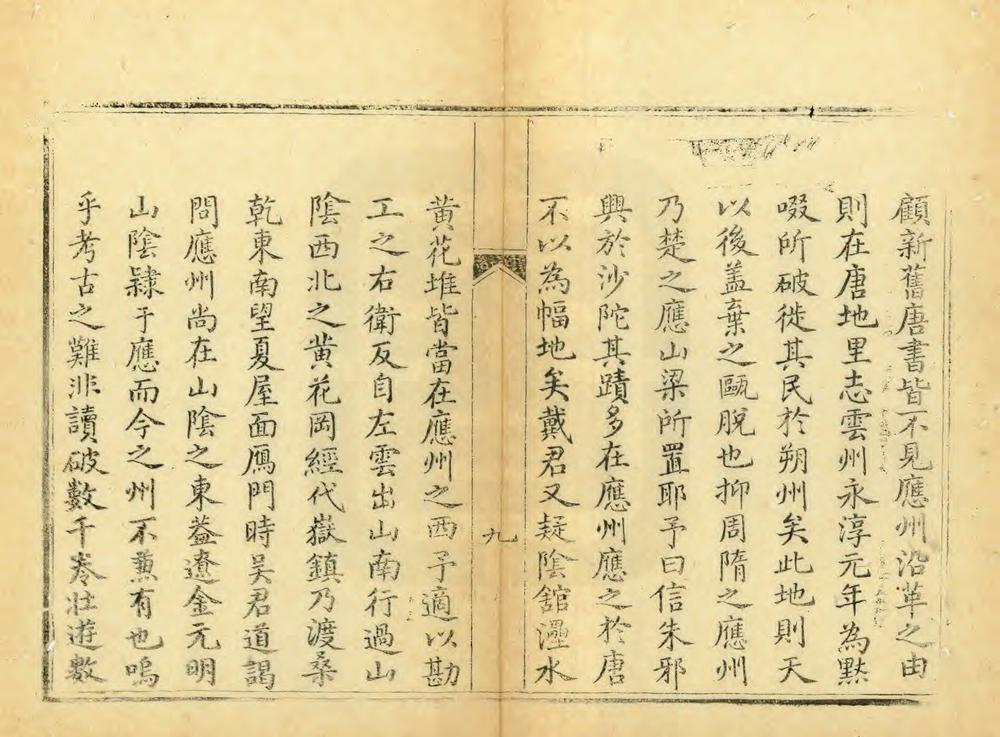 顧新舊唐書皆不見應州沿革之由
則在唐地里志雲州永淳元年為黙
啜所破徙其民於朔州矣此地則天
以後蓋棄之甌脫也抑周隋之應州
乃楚之應山梁所置耶予曰信朱邪
興於沙陀其蹟多在應州應之於唐
不以為幅地矣戴君又疑陰舘㶟水
九
黄花堆皆當在應州之西予適以勘
工之右衛反自左雲出山南行過山
陰西北之黄花岡經代嶽鎮乃渡桑
乾東南望夏屋面鴈門時吴君道謁
問應州尚在山陰之東葢遼金元明
山陰隷于應而今之州不兼有也嗚
乎考古之難非讀破數千卷壮遊數